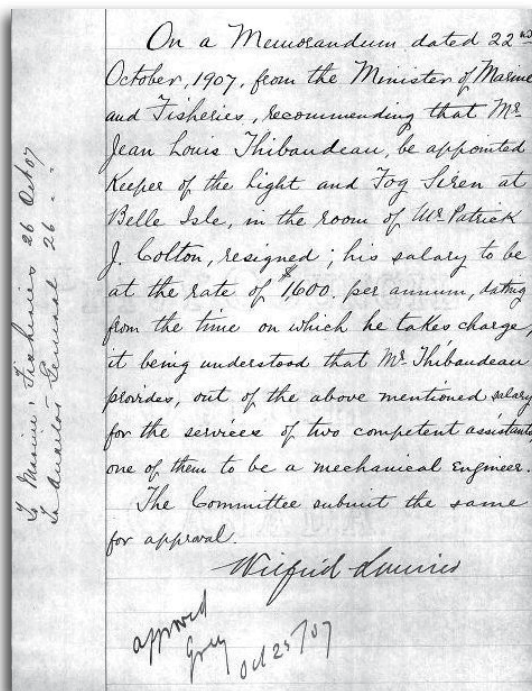 On a Memorandum dated 22nd
October, 1907, from the Minister of Marine
and Fisheries, recommending that Mr
Jean Louis Thibaudeau, be appointed
Keeper of the Light and Fog Siren at
Belle Isle, in the room of Mr Patrick
J. Colton, resigned; his salary to be
at the rate of $1,600. per annum, dating
from the time on which he takes charge,
it being understood that Mr. Thibaudeau
provides, out of the above mentioned salary
for the services of two competent assistants
one of them to be a mechanical engineer.
The Committee submit the same
for approval.
Wilfrid Laurier
approved
Grey Oct 25/07
To Marine & Fisheries 26 Oct 07
To Auditor General 26 " "